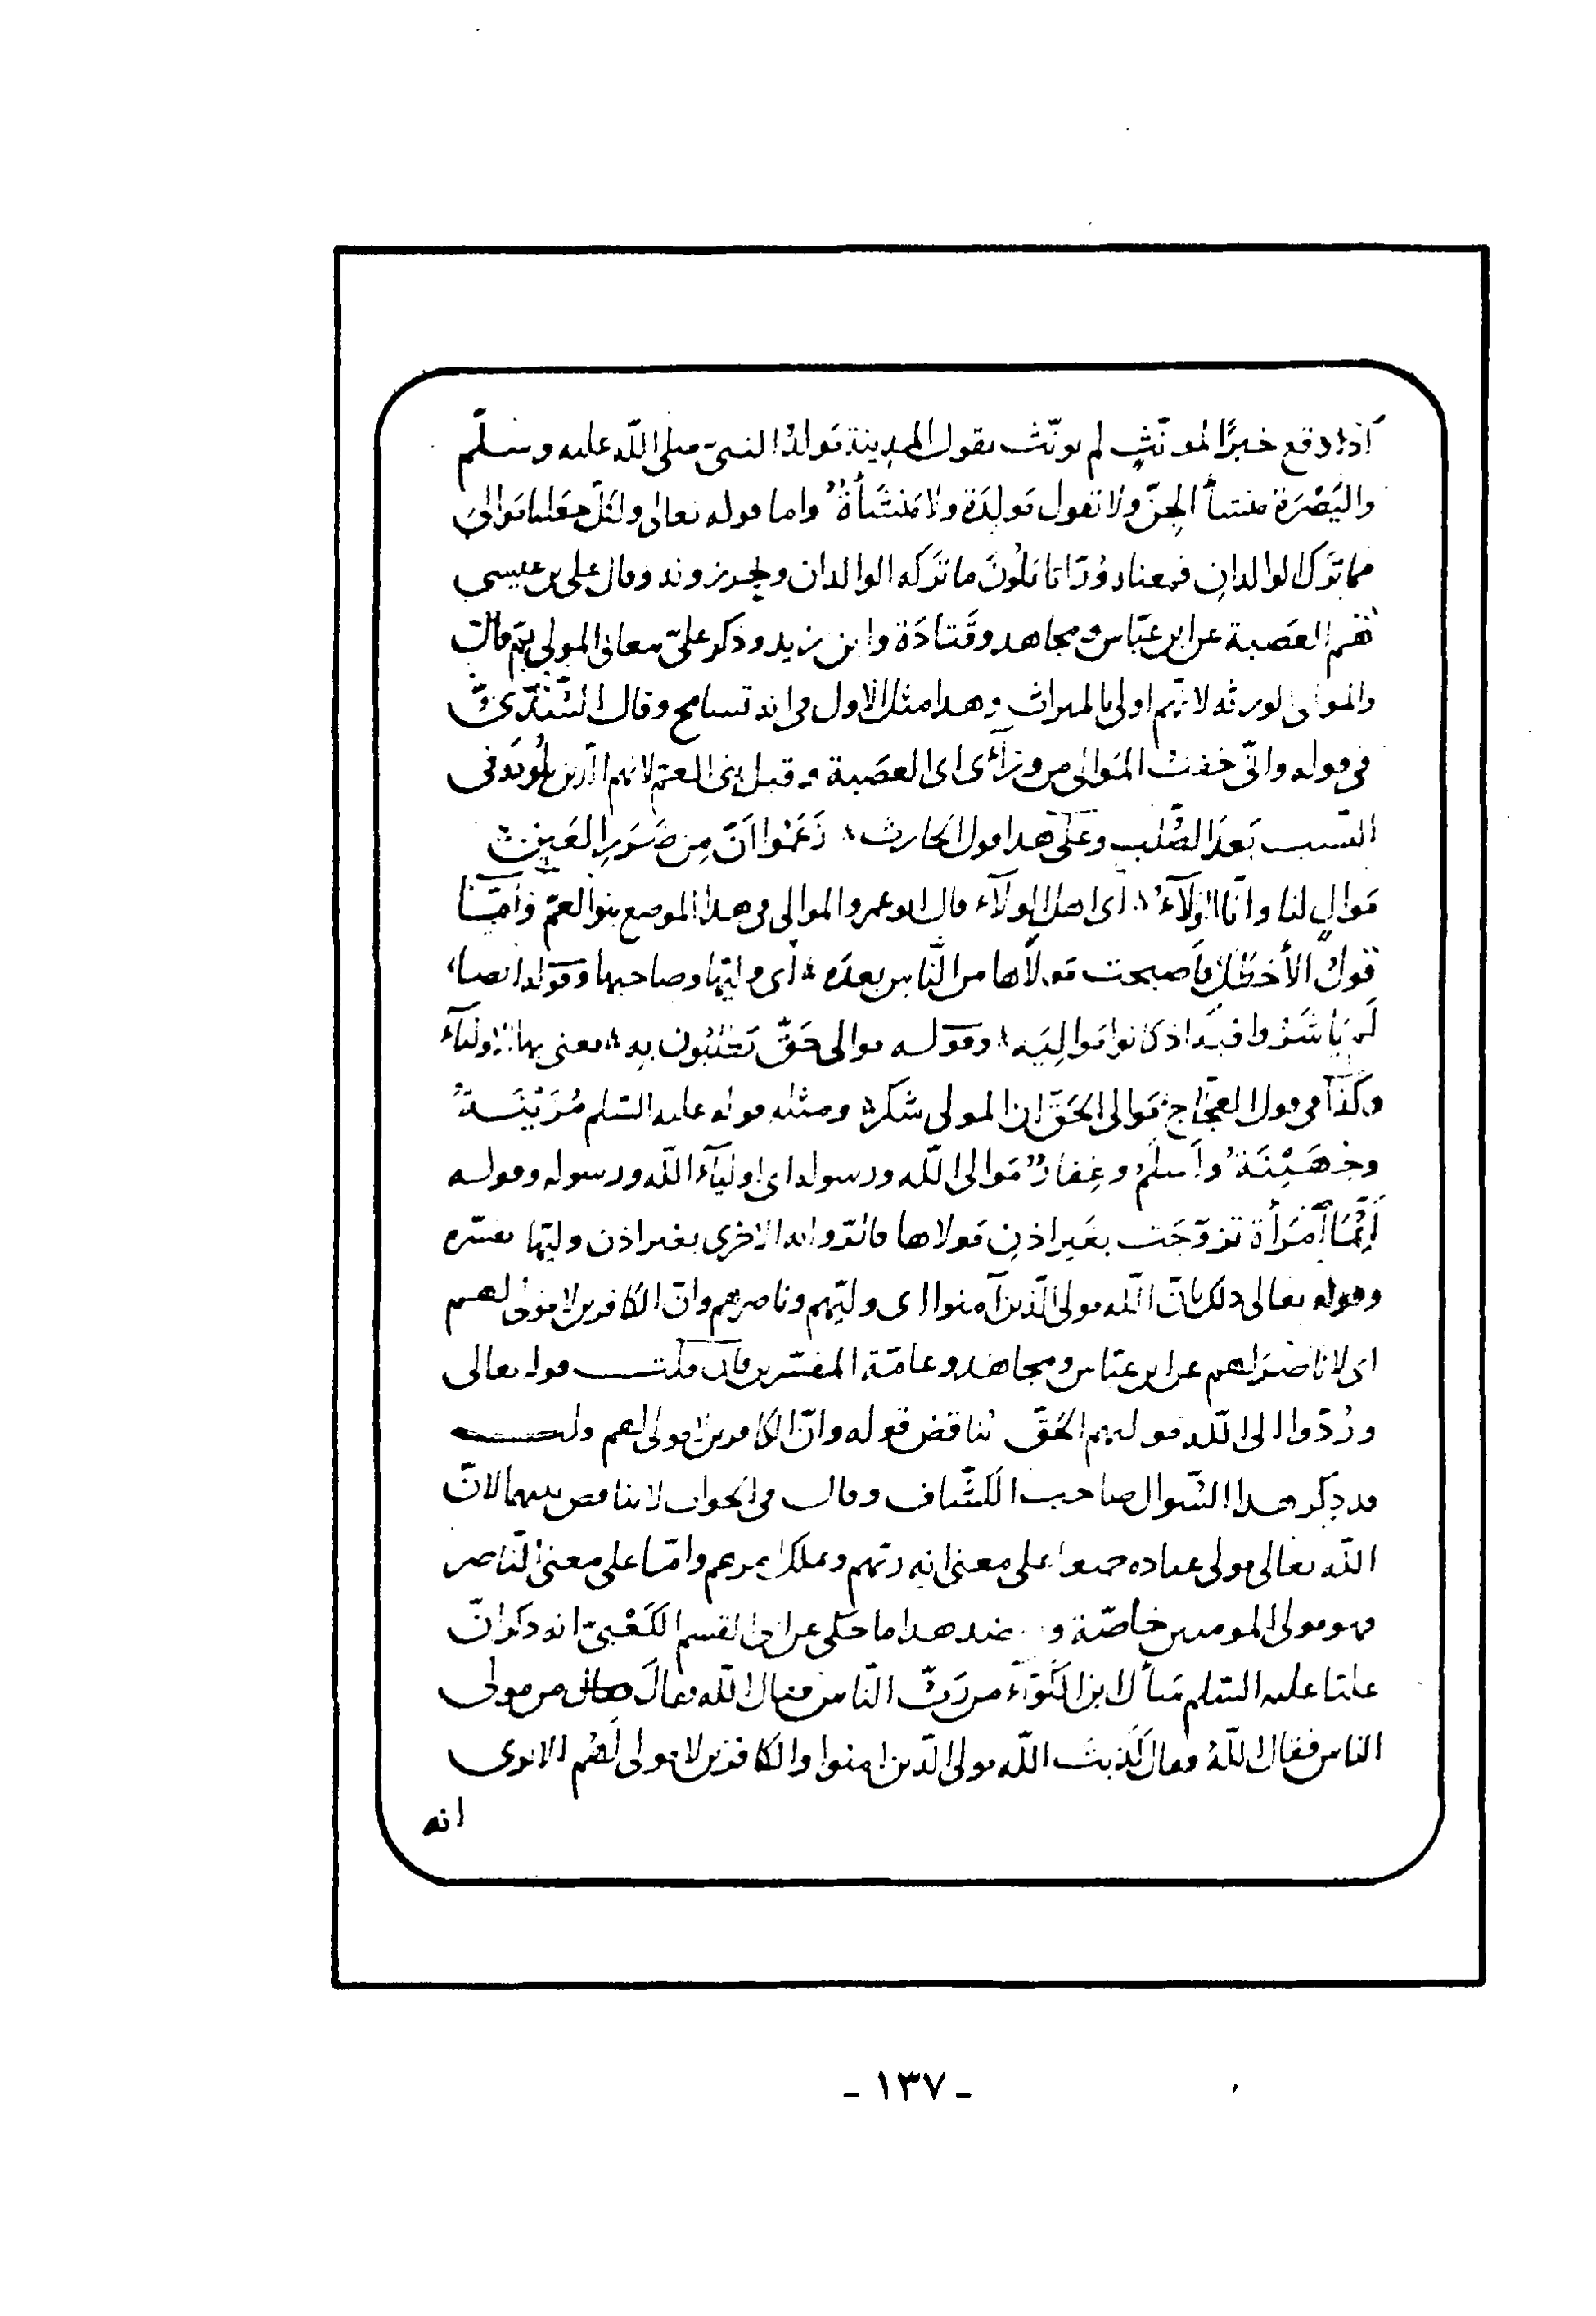 اذا وقع خبرًا لمونّثٍ لم يونّث تقول المدينة مَولدُ النبيّ صلى اللّه عليه وسلّم
والبَصْرَة منشأ الجنّ ولا تقول مَولِدَة ولا مَنشَأةٌ واما قوله تعالى ولكلّ جعلنا مَوالىَ
مما تَرَك الوالدانِ فمعناه وُرّاثا يَلُونَ ما تَرَكه الوالدان ويحرزونه وقال على بن عيسى
هم العَصَبة عن ابن عبّاس ومجاهد وقَتادَة وابن زيد وذكر علىّ معانى المولى ثم قال
والمولى الورثه لانّهم اولى بالميراث وهذا مثل الاول فى انه تسامح وقال السُّدّىّ
فى قوله وانّى خفتُ المَوالى من ورآءى اى العصَبة وقيل بنى العمّ لانهم الّذين يلُونه فى
النّسب بَعدَ الصُّلب وعلى هذا قول الحارث زَعَمُوا اَنّ مَن ضَرَبَ العَير
مَوالٍ لنا وانّا الوَلآءُ اى اهل الولآء قال ابو عمرو الموالى فى هذا الموضع بنو العمّ وأمّا
قولُ الأخطل فاَصبحت مَولاَها من النّاس بعدَه اى وليّها وصاحبها وقوله ايضا
لَم يَاشَرُوا فيه اذ كانوا مَوالِيَه وقوله موالى حَقّ يَطلبُون به يعنى بها الاوليآء
وكذا فى قول العجّاج مَوالى الحَقّ ان المولى شكر ومثله قوله عليه السّلم مُزَيْنَــةُ
وجُهَيْنَةُ وَاَسلَمُ وغِفارٌ مَوالى اللّه ورسوله اى اوليآء اللّه ورسوله وقوله
اَيّمَا امْرَأة تزوّجَت بغَير اذنِ مَولاها فالرّوايه الاخرى بغير اذن وليّها تفسّره
وقوله تعالى ذلك بانّ اللّه مولى الّذين آمنوا اى وليّهم وناصرهم وانّ الكافرين لا مولى لهم
اى لا ناصَر لهم عن ابن عبّاس ومجاهد وعامّة المفسّرين فان قلت قوله تعالى
ورُدّوا الى اللّه موليهم الحَقّ يُناقض قوله وانّ الكافرين لا مولى لهم قلت
قد ذكر هذا السّوال صاحب الكشّاف وقال فى الجواب لا تناقض بينهما لانّ
اللّه تعالى مولى عباده جميعا على معنى انه ربّهم ومملك امرهم وامّا على معنى النّاصر
فهو مولى المومنين خاصّة و هذا ما حكى عن ابى القسم الكَعْبىّ انه ذكر انّ
عليّا عليه السّلم سَأل ابن الكَوّآء من رَبّ النّاس فقال اللّه فقالَ من مولى
الناس فقال اللّهُ فقال كَذبتَ اللّه مولى الّذين امنوا والكافرين لا مولى لَهُم الا ترى
انه
- ١٣٧ -